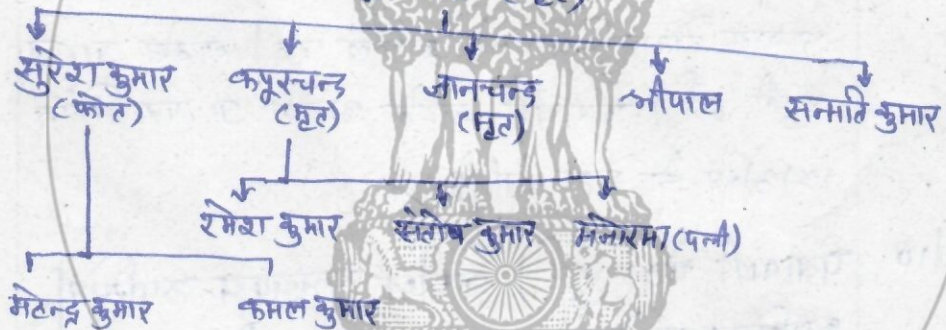 सुरेश कुमार कपूरचन्द ज्ञानचन्द श्रीपाल सन्मति कुमार
(फोत) (मृत) (मृत)
रमेश कुमार संतोष कुमार मनोरमा (पत्नी)
महेन्द्र कुमार कमल कुमार